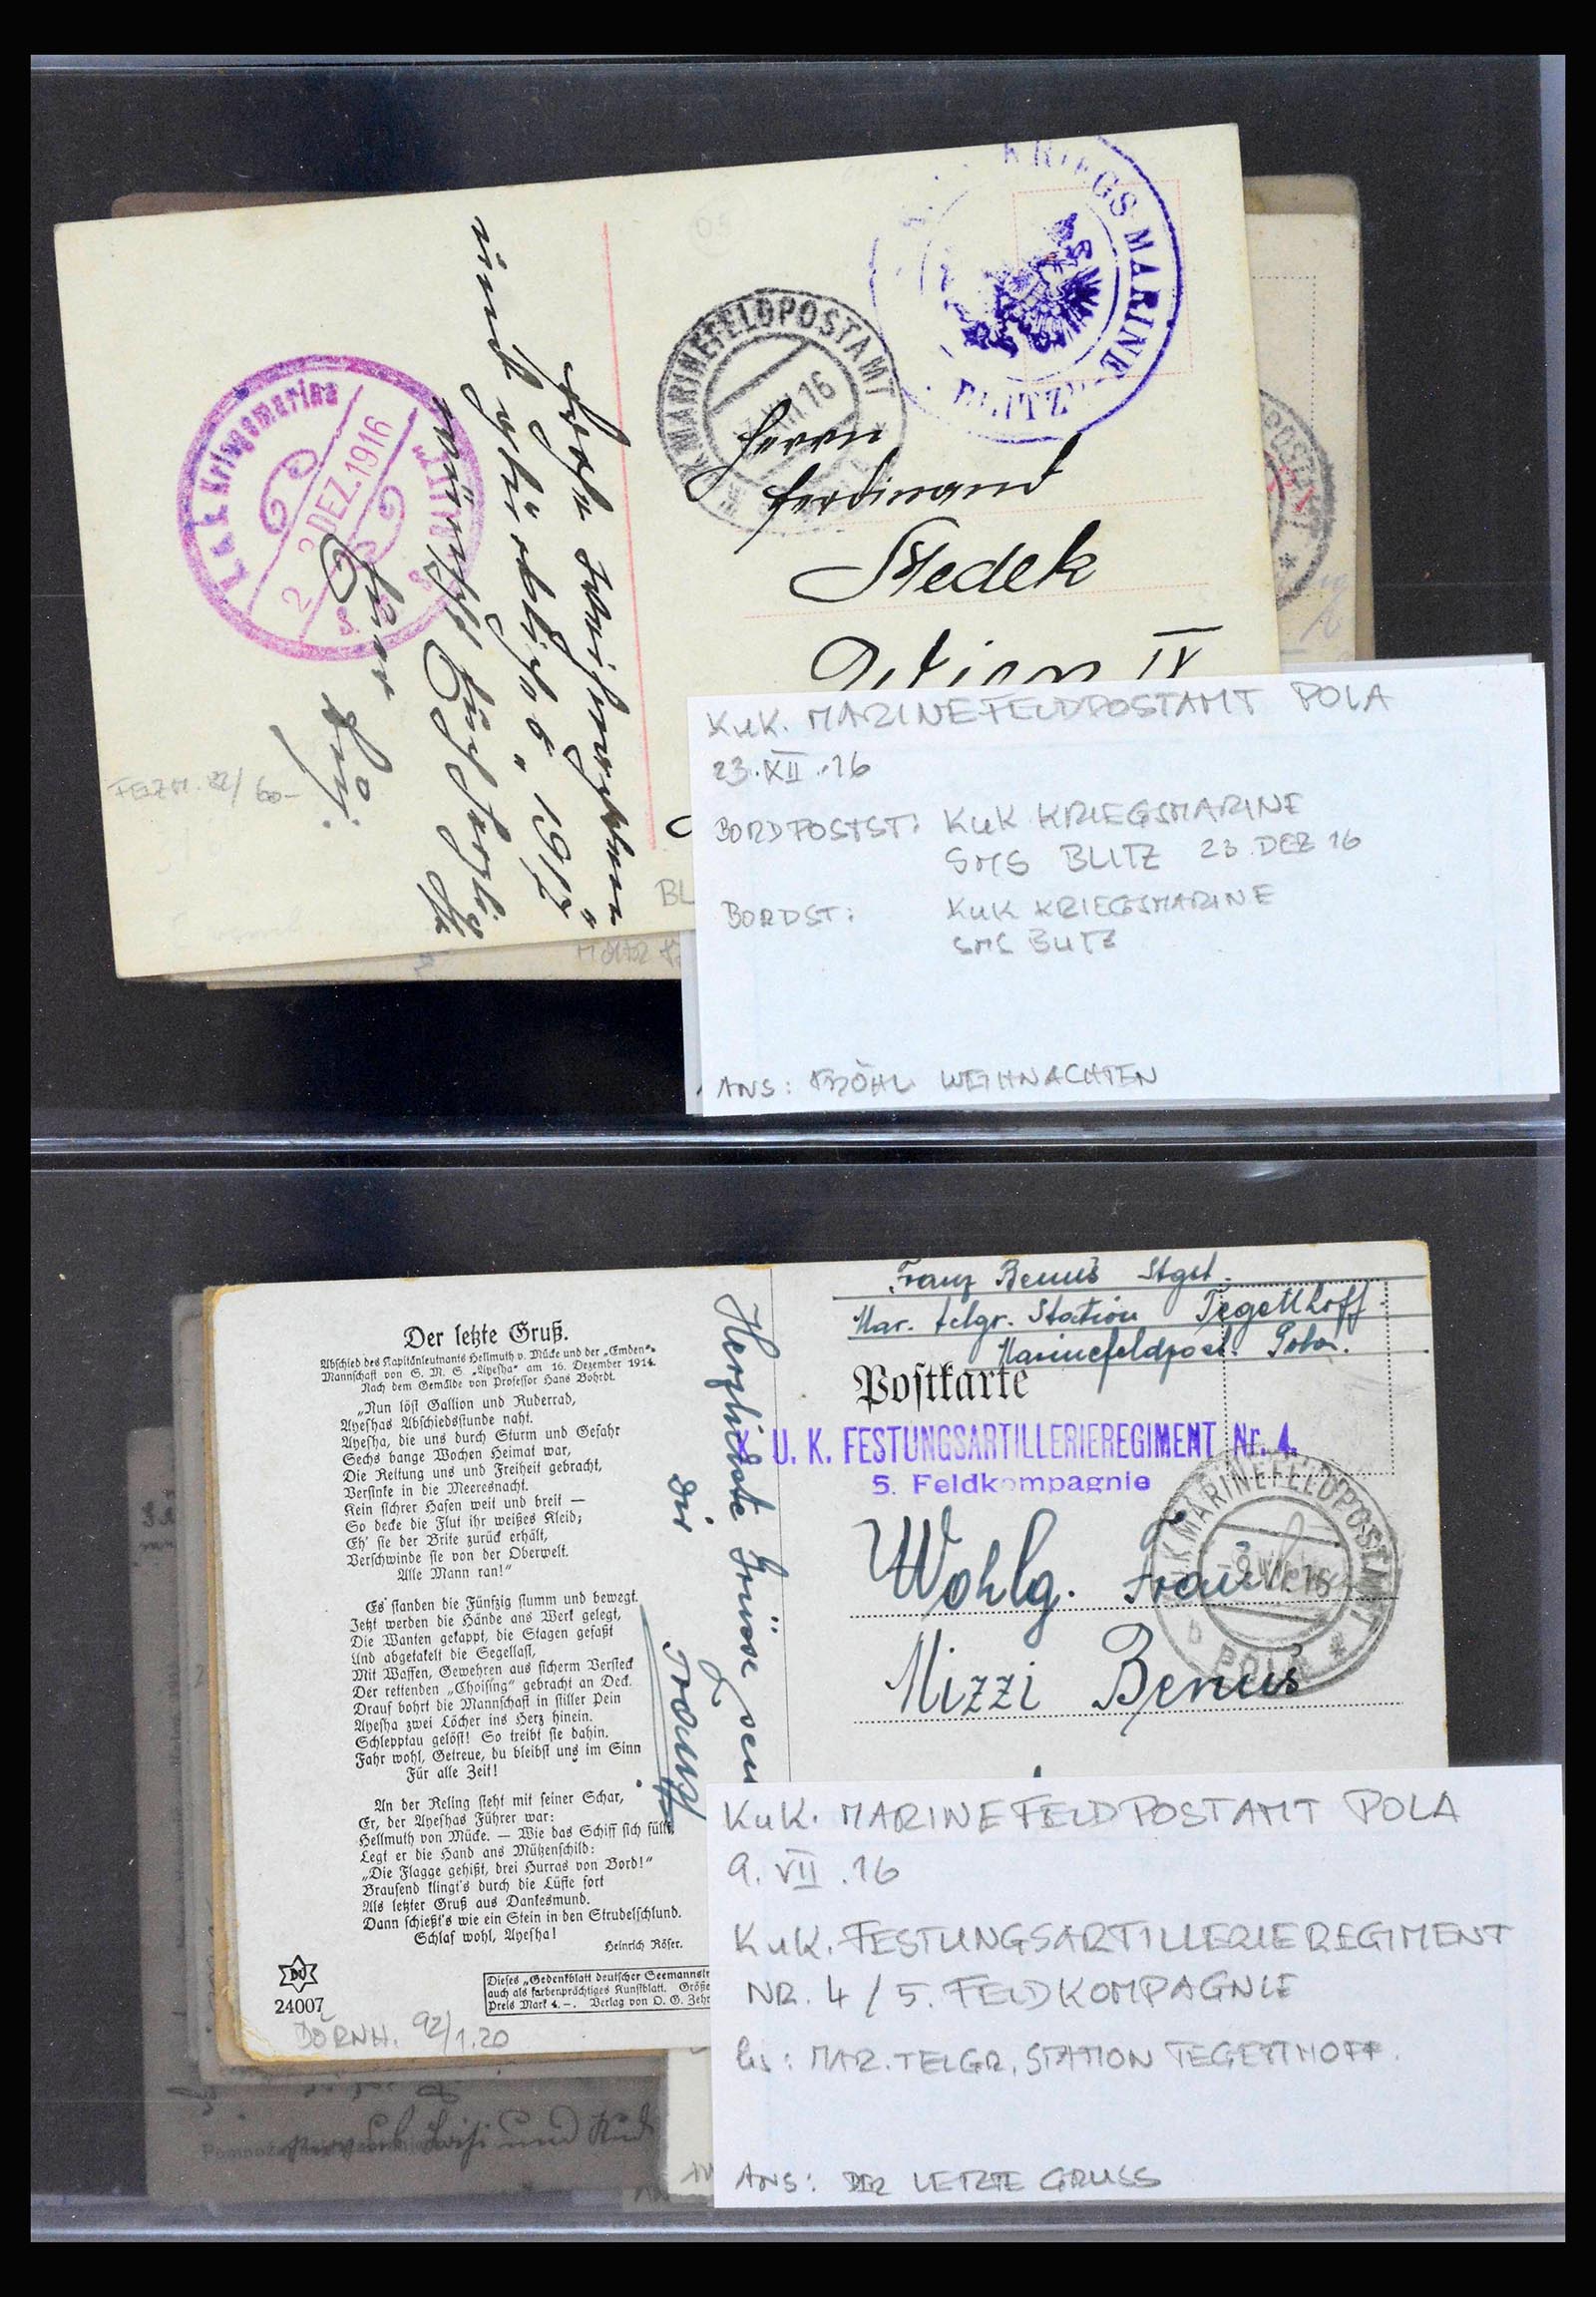 KRIEGS-MARINE
BLITZ
K MARINEFELDPOSTAMT
16
K.u.k. Kriegsmarine
2 DEZ. 1916
S.M.S. BLITZ
Herrn
Ferdinand
Stedek
Wien IV
und
1917
FEZM. 22/60-
BL
KuK. MARINEFELDPOSTAMT POLA
23.XII.16
BORDPOSTST: KuK KRIEGSMARINE
SMS BLITZ 23.DEZ 16
BORDST: KuK KRIEGSMARINE
SMS BLITZ
ANS: FRÖHL. WEIHNACHTEN
Franz Benuš Stgst.
Mar. telgr. Station Tegetthoff
Marinefeldpost Pola.
Postkarte
U. K. FESTUNGSARTILLERIEREGIMENT Nr. 4.
5. Feldkompagnie
K MARINEFELDPOSTAMT
9.VII.16
b POLA *
Wohlg. Frau
Mizzi Benuš
Herzlichste Grüsse sen
dir
Franz
Der letzte Gruß.
Abschied des Kapitänleutnants Hellmuth v. Mücke und der „Emden“=
Mannschaft von S. M. S. „Ayesha“ am 16. Dezember 1914.
Nach dem Gemälde von Professor Hans Bohrdt.
„Nun löst Gallion und Ruderrad,
Ayeshas Abschiedsstunde naht.
Ayesha, die uns durch Sturm und Gefahr
Sechs bange Wochen Heimat war,
Die Rettung uns und Freiheit gebracht,
Versinke in die Meeresnacht.
Kein sichrer Hafen weit und breit —
So decke die Flut ihr weißes Kleid;
Eh' sie der Brite zurück erhält,
Verschwinde sie von der Oberwelt.
Alle Mann ran!“
Es standen die Fünfzig stumm und bewegt.
Jetzt werden die Hände ans Werk gelegt,
Die Wanten gekappt, die Stagen gefaßt
Und abgetakelt die Segellast,
Mit Waffen, Gewehren aus sicherm Versteck
Der rettenden „Choising“ gebracht an Deck.
Drauf bohrt die Mannschaft in stiller Pein
Ayesha zwei Löcher ins Herz hinein.
Schlepptau gelöst! So treibt sie dahin.
Fahr wohl, Getreue, du bleibst uns im Sinn
Für alle Zeit!
An der Reling steht mit seiner Schar,
Er, der Ayeshas Führer war:
Hellmuth von Mücke. — Wie das Schiff sich füllt,
Legt er die Hand ans Mützenschild:
„Die Flagge gehißt, drei Hurras von Bord!“
Brausend klingt's durch die Lüfte fort
Als letzter Gruß aus Dankesmund.
Dann schießt's wie ein Stein in den Strudelschlund.
Schlaf wohl, Ayesha!
Heinrich Röser.
24007
Dieses „Gedenkblatt deutscher Seemannstr
auch als farbenprächtiges Kunstblatt. Größe
Preis Mark 4.—. Verlag von O. G. Zehr
DÖRNH. 92/1.20
KuK. MARINEFELDPOSTAMT POLA
9.VII.16
KuK. FESTUNGSARTILLERIEREGIMENT
NR. 4 / 5. FELDKOMPAGNIE
hs: MAR. TELGR. STATION TEGETTHOFF.
ANS: DER LETZTE GRUSS